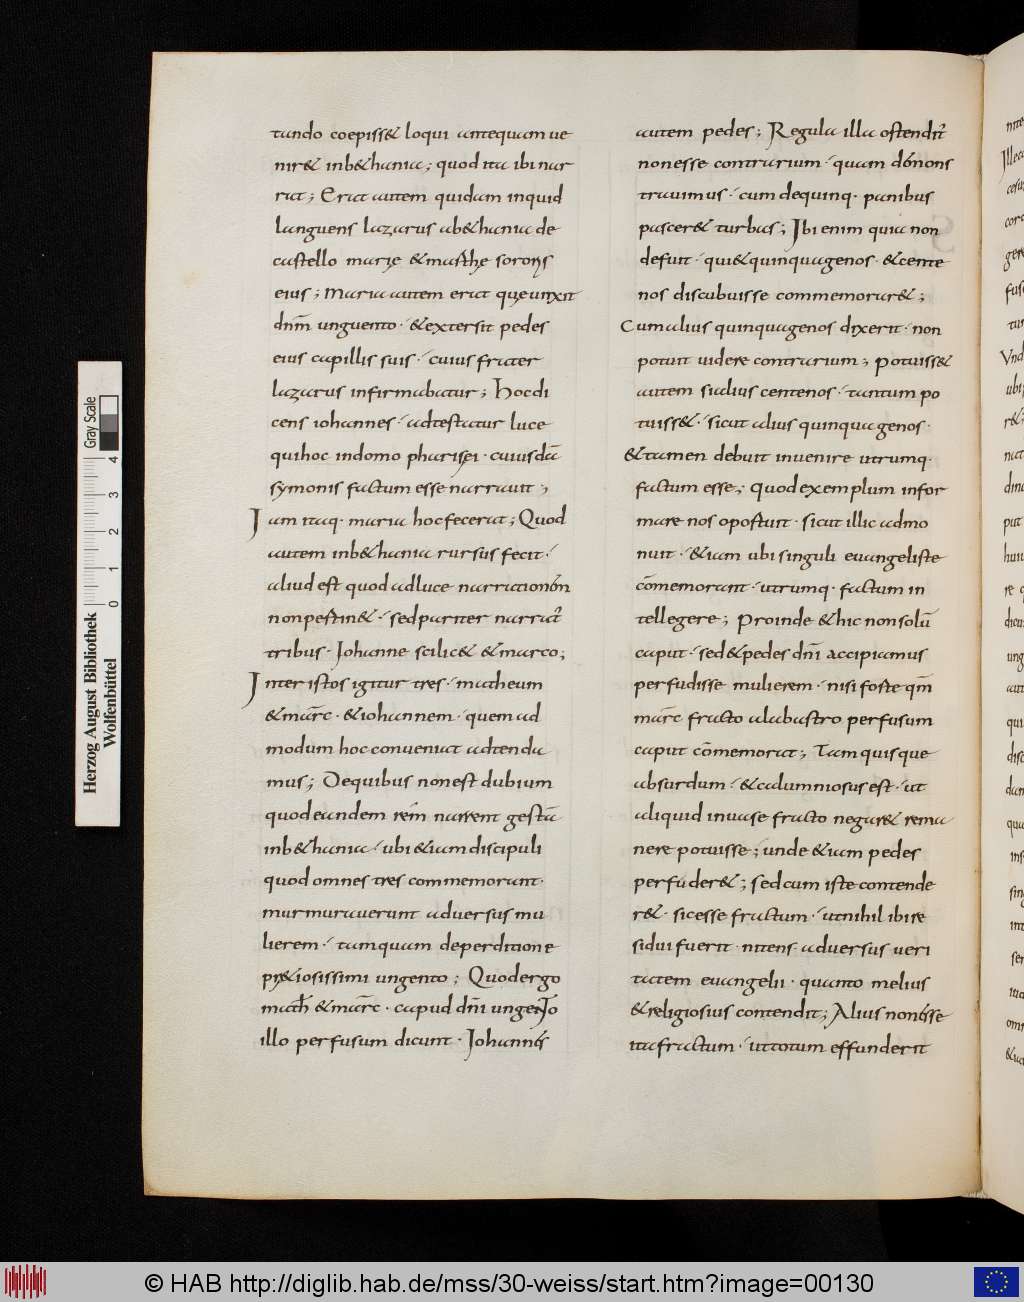 tando coepiss& loqui antequam ue
nir& inb&hania; quod ita ibi nar
rat; Erat autem quidam inquid
languens lazarus ab&hania de
castello marię &marthę sororis
eius; Maria autem erat quę unxit
dnm̄ unguento· &extersit pedes
eius capillis suis· cuius frater
lazarus infirmabatur; Hoc di
cens iohannes· adtestatur luce
qui hoc indomo pharisei· cuiusdā
symonis factum esse narrauit;
Iam itaq· maria hoc fecerat; Quod
autem inb&hania rursus fecit·
aliud est quod ad luce narrationēm
non pertin&· sed pariter narrat̄
tribus· Iohanne scilic& &marco;
Inter istos igitur tres· matheum
&marc̄· &iohannem· quem ad
modum hoc conueniat adtenda
mus; De quibus non est dubium
quod eandem rem narrent gestā
inb&hania· ubi &iam discipuli
quod omnes tres commemorant·
murmurauerunt aduersus mu
lierem· tamquam de perditione
pr&iosissimi ungento; Quod ergo
math̄ &marc̄· capud dn̄i ungento
illo perfusum dicunt· Iohannis
autem pedes; Regula illa ostendit̄
non esse contrarium· quam demons
trauimus· cum de quinq· panibus
pascer& turbas; Ibi enim quia non
defuit· qui &quinquagenos· &cente
nos discubuisse commemorar&;
Cum alius quinquagenos dixerit· non
potuit uidere contrarium; potuiss&
autem si alius centenos· tantum po
tuiss&· sicut alius quinquagenos·
&tamen debuit inuenire utrumq·
factum esse; quod exemplum infor
mare nos oportuit· sicut illic admo
nuit· &iam ubi singuli euangeliste
cōmemorant· utrumq· factum in
tellegere; Proinde &hic non solū
caput· sed &pedes dn̄i accipiamus
perfudisse mulierem· nisi forte qm̄
marc̄ fracto alabastro perfusum
caput cōmemorat; Tam quisque
absurdum· &calumniosus est· ut
aliquid in uase fracto negar& rema
nere potuisse; unde &iam pedes
perfuder&; sed cum iste contende
r&· sic esse fractum· ut nihil ibi re
sidui fuerit· nitens aduersus ueri
tatem euangelii· quanto melius
&religiosius contendit; Alius non esse
ita fractum· ut totum effunderit
nite
Illeca
Herzog August Bibliothek
Wolfenbüttel
Gray Scale
0 1 2 3 4
© HAB http://diglib.hab.de/mss/30-weiss/start.htm?image=00130